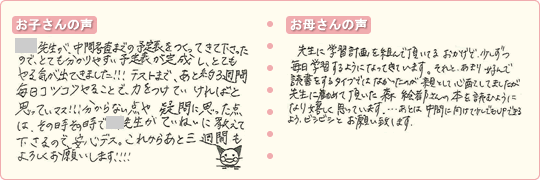 お子さんの声
先生が、中間考査までの予定表をつくってきて下さった
ので、とても分かりやすい予定表が完成し、とても
やる気が出てきました!!! テストまで、あと約3週間
毎日コツコツやることで、力をつけていければと
思っていマス!!! 分からない点や 疑問に思った点
は、その時その時で 先生がていねいに教えて
下さるので、安心デス。これからあと三週間も
よろしくお願いします!!!!
お母さんの声
先生に学習計画を組んで頂いてる おかげで、少しずつ
毎日学習するようになってきています。それと、あまり好んで
読書をするタイプではなかったので 親として心配してましたが
先生に薦めて頂いた 森 絵都さんの本を読むように
なり嬉しく思っています。…あとは 中間に向けてすこしでもUPできる
よう、ビシビシと お願い致します。